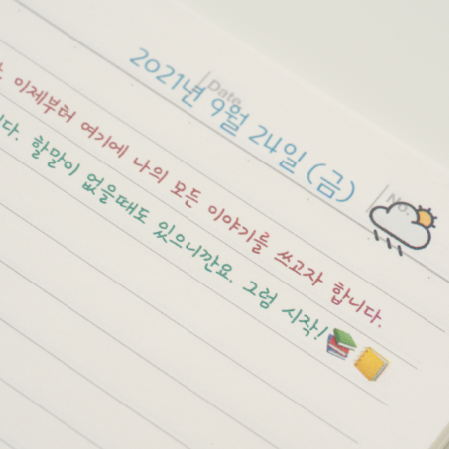 Date
2021년 9월 24일 (금)
No.
이제부터 여기에 나의 모든 이야기를 쓰고자 합니다.
할말이 없을때도 있으니깐요. 그럼 시작!